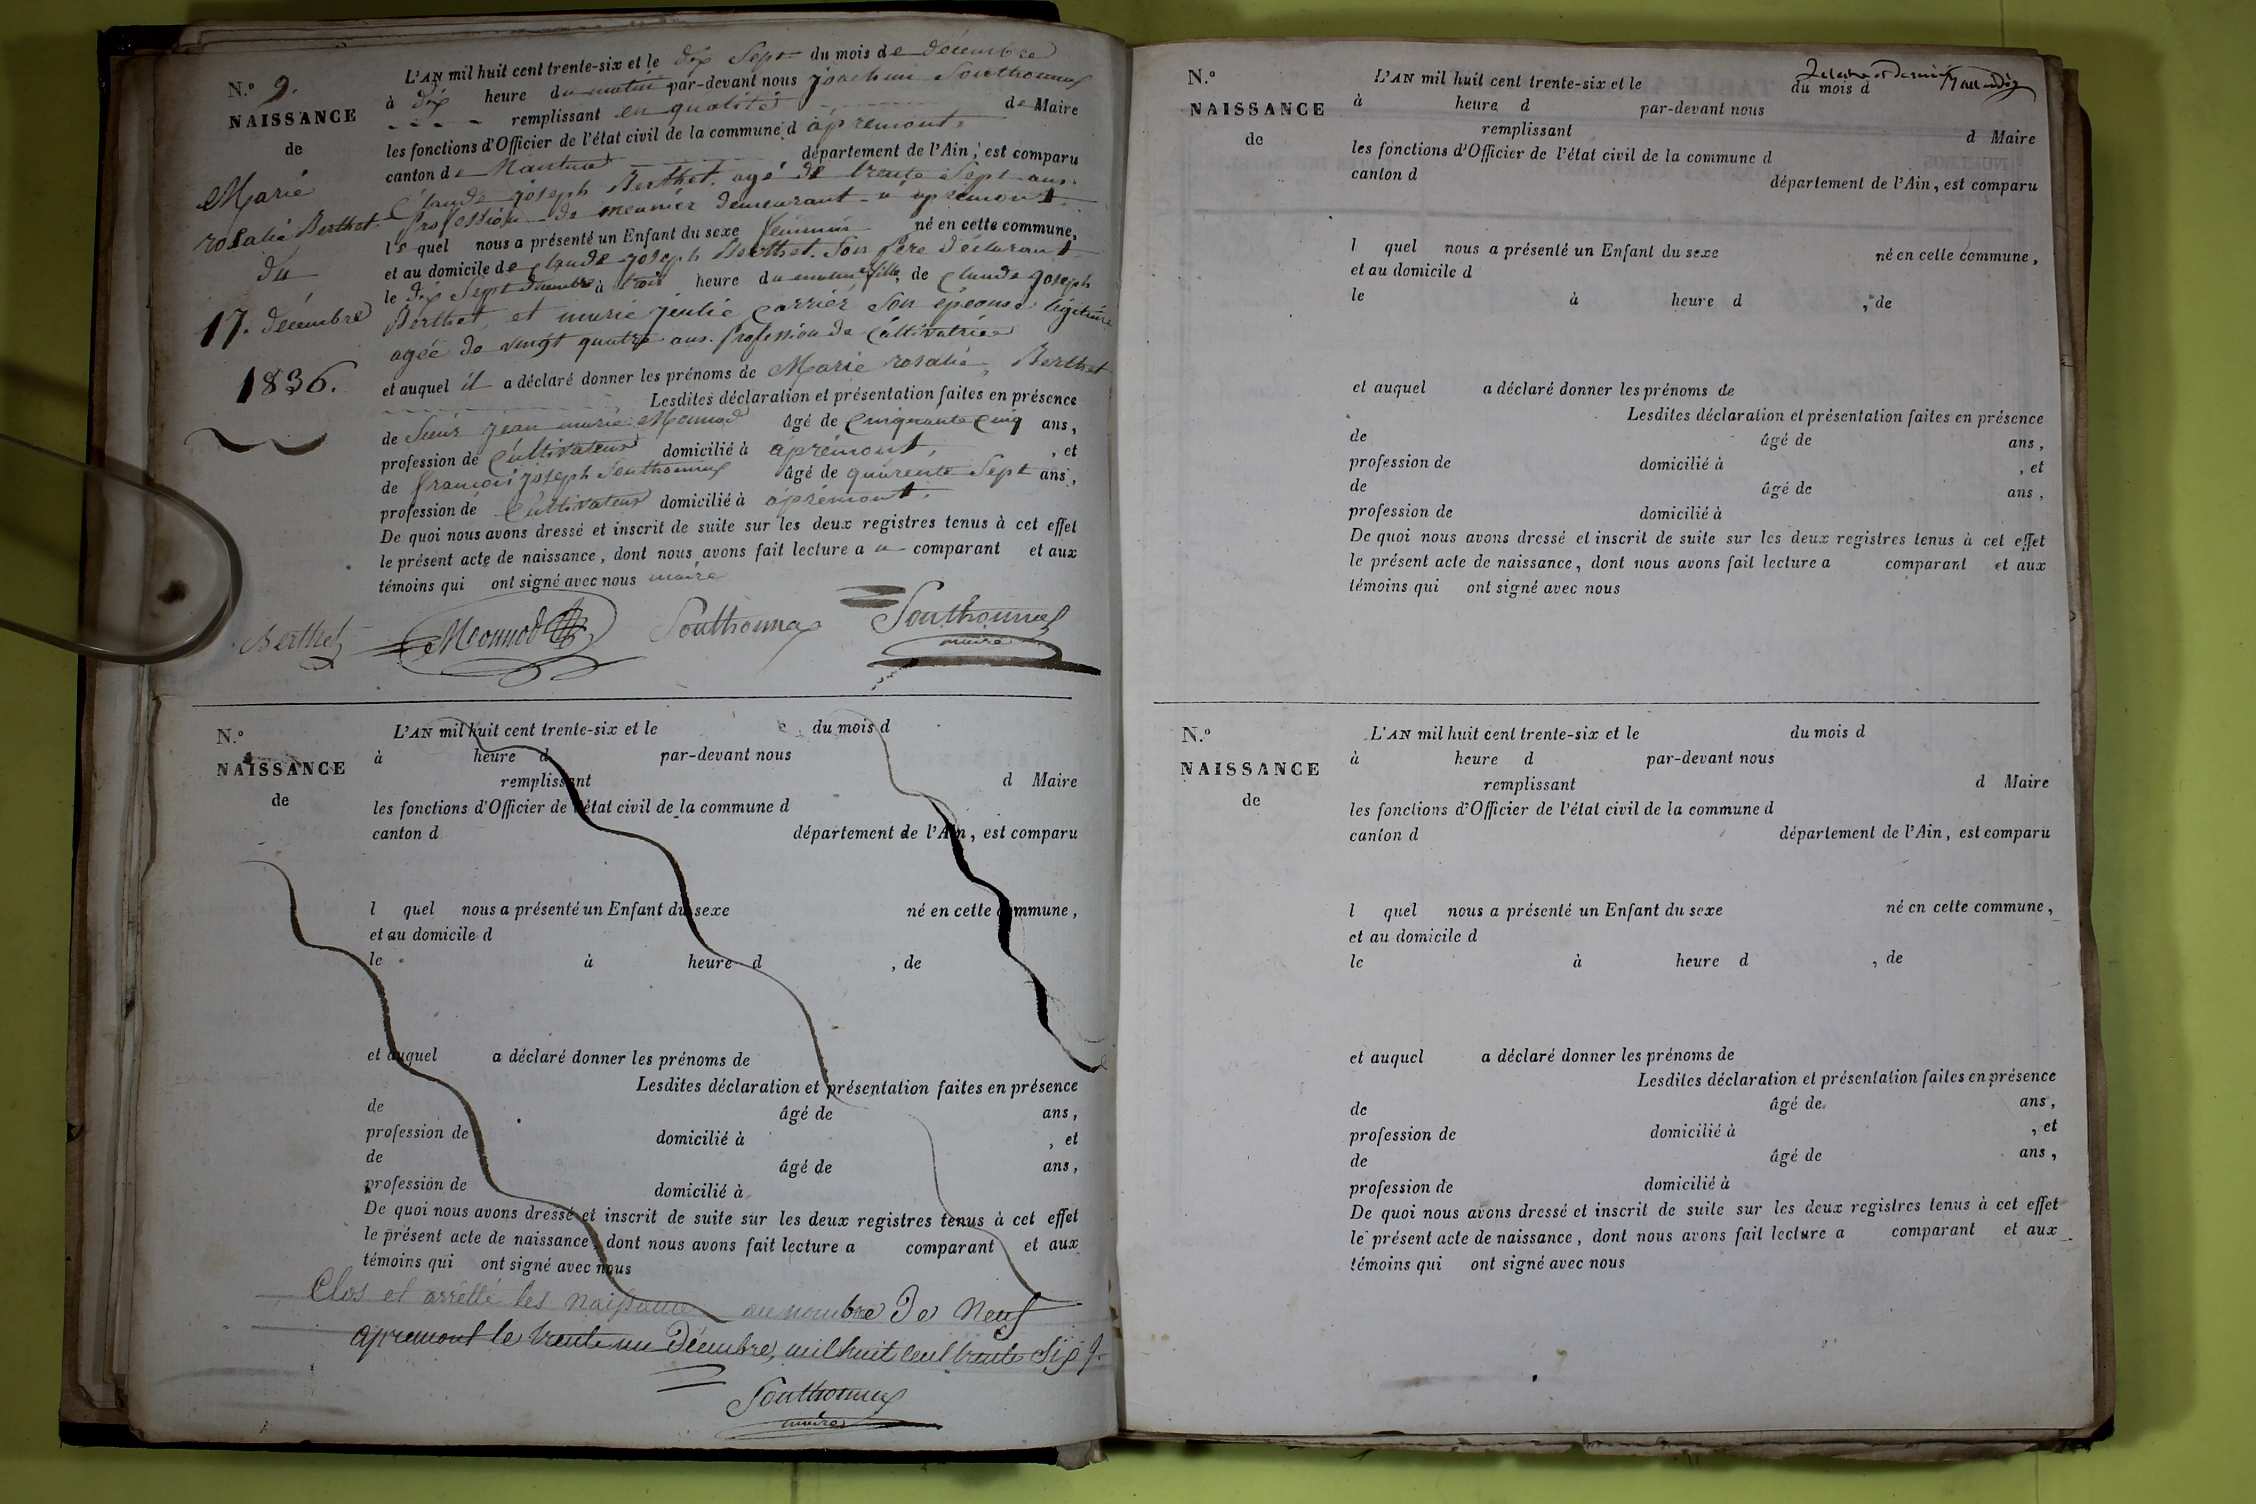 N.° 9.
NAISSANCE
de
Marie
rosalie Berthet
du
17. décembre
1836.
L'AN mil huit cent trente-six et le dix Sept du mois de décembre
à dix heure du matin par-devant nous joachim Southonnax
remplissant en qualité de Maire
les fonctions d'Officier de l'état civil de la commune d'apremont,
canton de Nantua département de l'Ain, est comparu
Claude joseph Berthet. agé de trente Sept ans.
profession de meunier demeurant a apremont
le quel nous a présenté un Enfant du sexe féminin né en cette commune,
et au domicile de claude joseph Berthet. Son père déclarant
le dix Sept décembre à trois heure du matin fille, de claude joseph
Berthet, et marie julie Carrier Son épouse légitime
agée de vingt quatre ans. profession de Cultivatrice
et auquel il a déclaré donner les prénoms de Marie rosalie, Berthet
Lesdites déclaration et présentation faites en présence
de Sieur jean marie Monnod âgé de Cinquante Cinq ans,
profession de Cultivateur domicilié à apremont, , et
de françois joseph Southonnax âgé de quarente Sept ans,
profession de Cultivateur domicilié à apremont,
De quoi nous avons dressé et inscrit de suite sur les deux registres tenus à cet effet
le présent acte de naissance, dont nous avons fait lecture a u comparant et aux
témoins qui ont signé avec nous maire
Berthet Monnod Southonnax Southonnax
maire
N.°
NAISSANCE
de
L'AN mil huit cent trente-six et le du mois d
à heure d par-devant nous
remplissant d Maire
les fonctions d'Officier de l'état civil de la commune d
canton d département de l'Ain, est comparu
l quel nous a présenté un Enfant du sexe né en cette commune,
et au domicile d
le à heure d , de
et auquel a déclaré donner les prénoms de
Lesdites déclaration et présentation faites en présence
de âgé de ans,
profession de domicilié à , et
de âgé de ans,
profession de domicilié à
De quoi nous avons dressé et inscrit de suite sur les deux registres tenus à cet effet
le présent acte de naissance, dont nous avons fait lecture a comparant et aux
témoins qui ont signé avec nous
Clos et arrêtté les naissance au nombre De Neuf
apremont le trente un Décembre, mil huit cent trente Six
Southonnax
maire
N.°
NAISSANCE
de
L'AN mil huit cent trente-six et le du mois d
à heure d par-devant nous
remplissant d Maire
les fonctions d'Officier de l'état civil de la commune d
canton d département de l'Ain, est comparu
l quel nous a présenté un Enfant du sexe né en cette commune,
et au domicile d
le à heure d , de
et auquel a déclaré donner les prénoms de
Lesdites déclaration et présentation faites en présence
de âgé de ans,
profession de domicilié à , et
de âgé de ans,
profession de domicilié à
De quoi nous avons dressé et inscrit de suite sur les deux registres tenus à cet effet
le présent acte de naissance, dont nous avons fait lecture a comparant et aux
témoins qui ont signé avec nous
N.°
NAISSANCE
de
L'AN mil huit cent trente-six et le du mois d
à heure d par-devant nous
remplissant d Maire
les fonctions d'Officier de l'état civil de la commune d
canton d département de l'Ain, est comparu
l quel nous a présenté un Enfant du sexe né en cette commune,
et au domicile d
le à heure d , de
et auquel a déclaré donner les prénoms de
Lesdites déclaration et présentation faites en présence
de âgé de ans,
profession de domicilié à , et
de âgé de ans,
profession de domicilié à
De quoi nous avons dressé et inscrit de suite sur les deux registres tenus à cet effet
le présent acte de naissance, dont nous avons fait lecture a comparant et aux
témoins qui ont signé avec nous